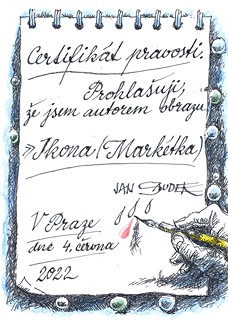 Certifikát pravosti.
Prohlašuji,
že jsem autorem obrazu
»Ikona (Markétka)
JAN DUDEK
V Praze
dne 4. června
2022